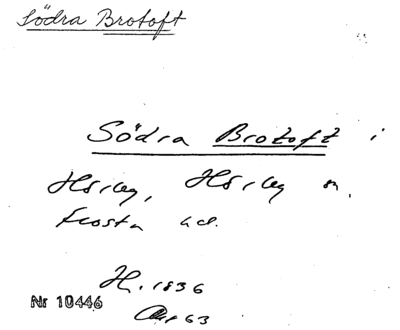 Södra Brotoft
Södra Brotoft i
Hörby, Hörby sn,
Frosta hd.
H. 1836
Nr 10446
63